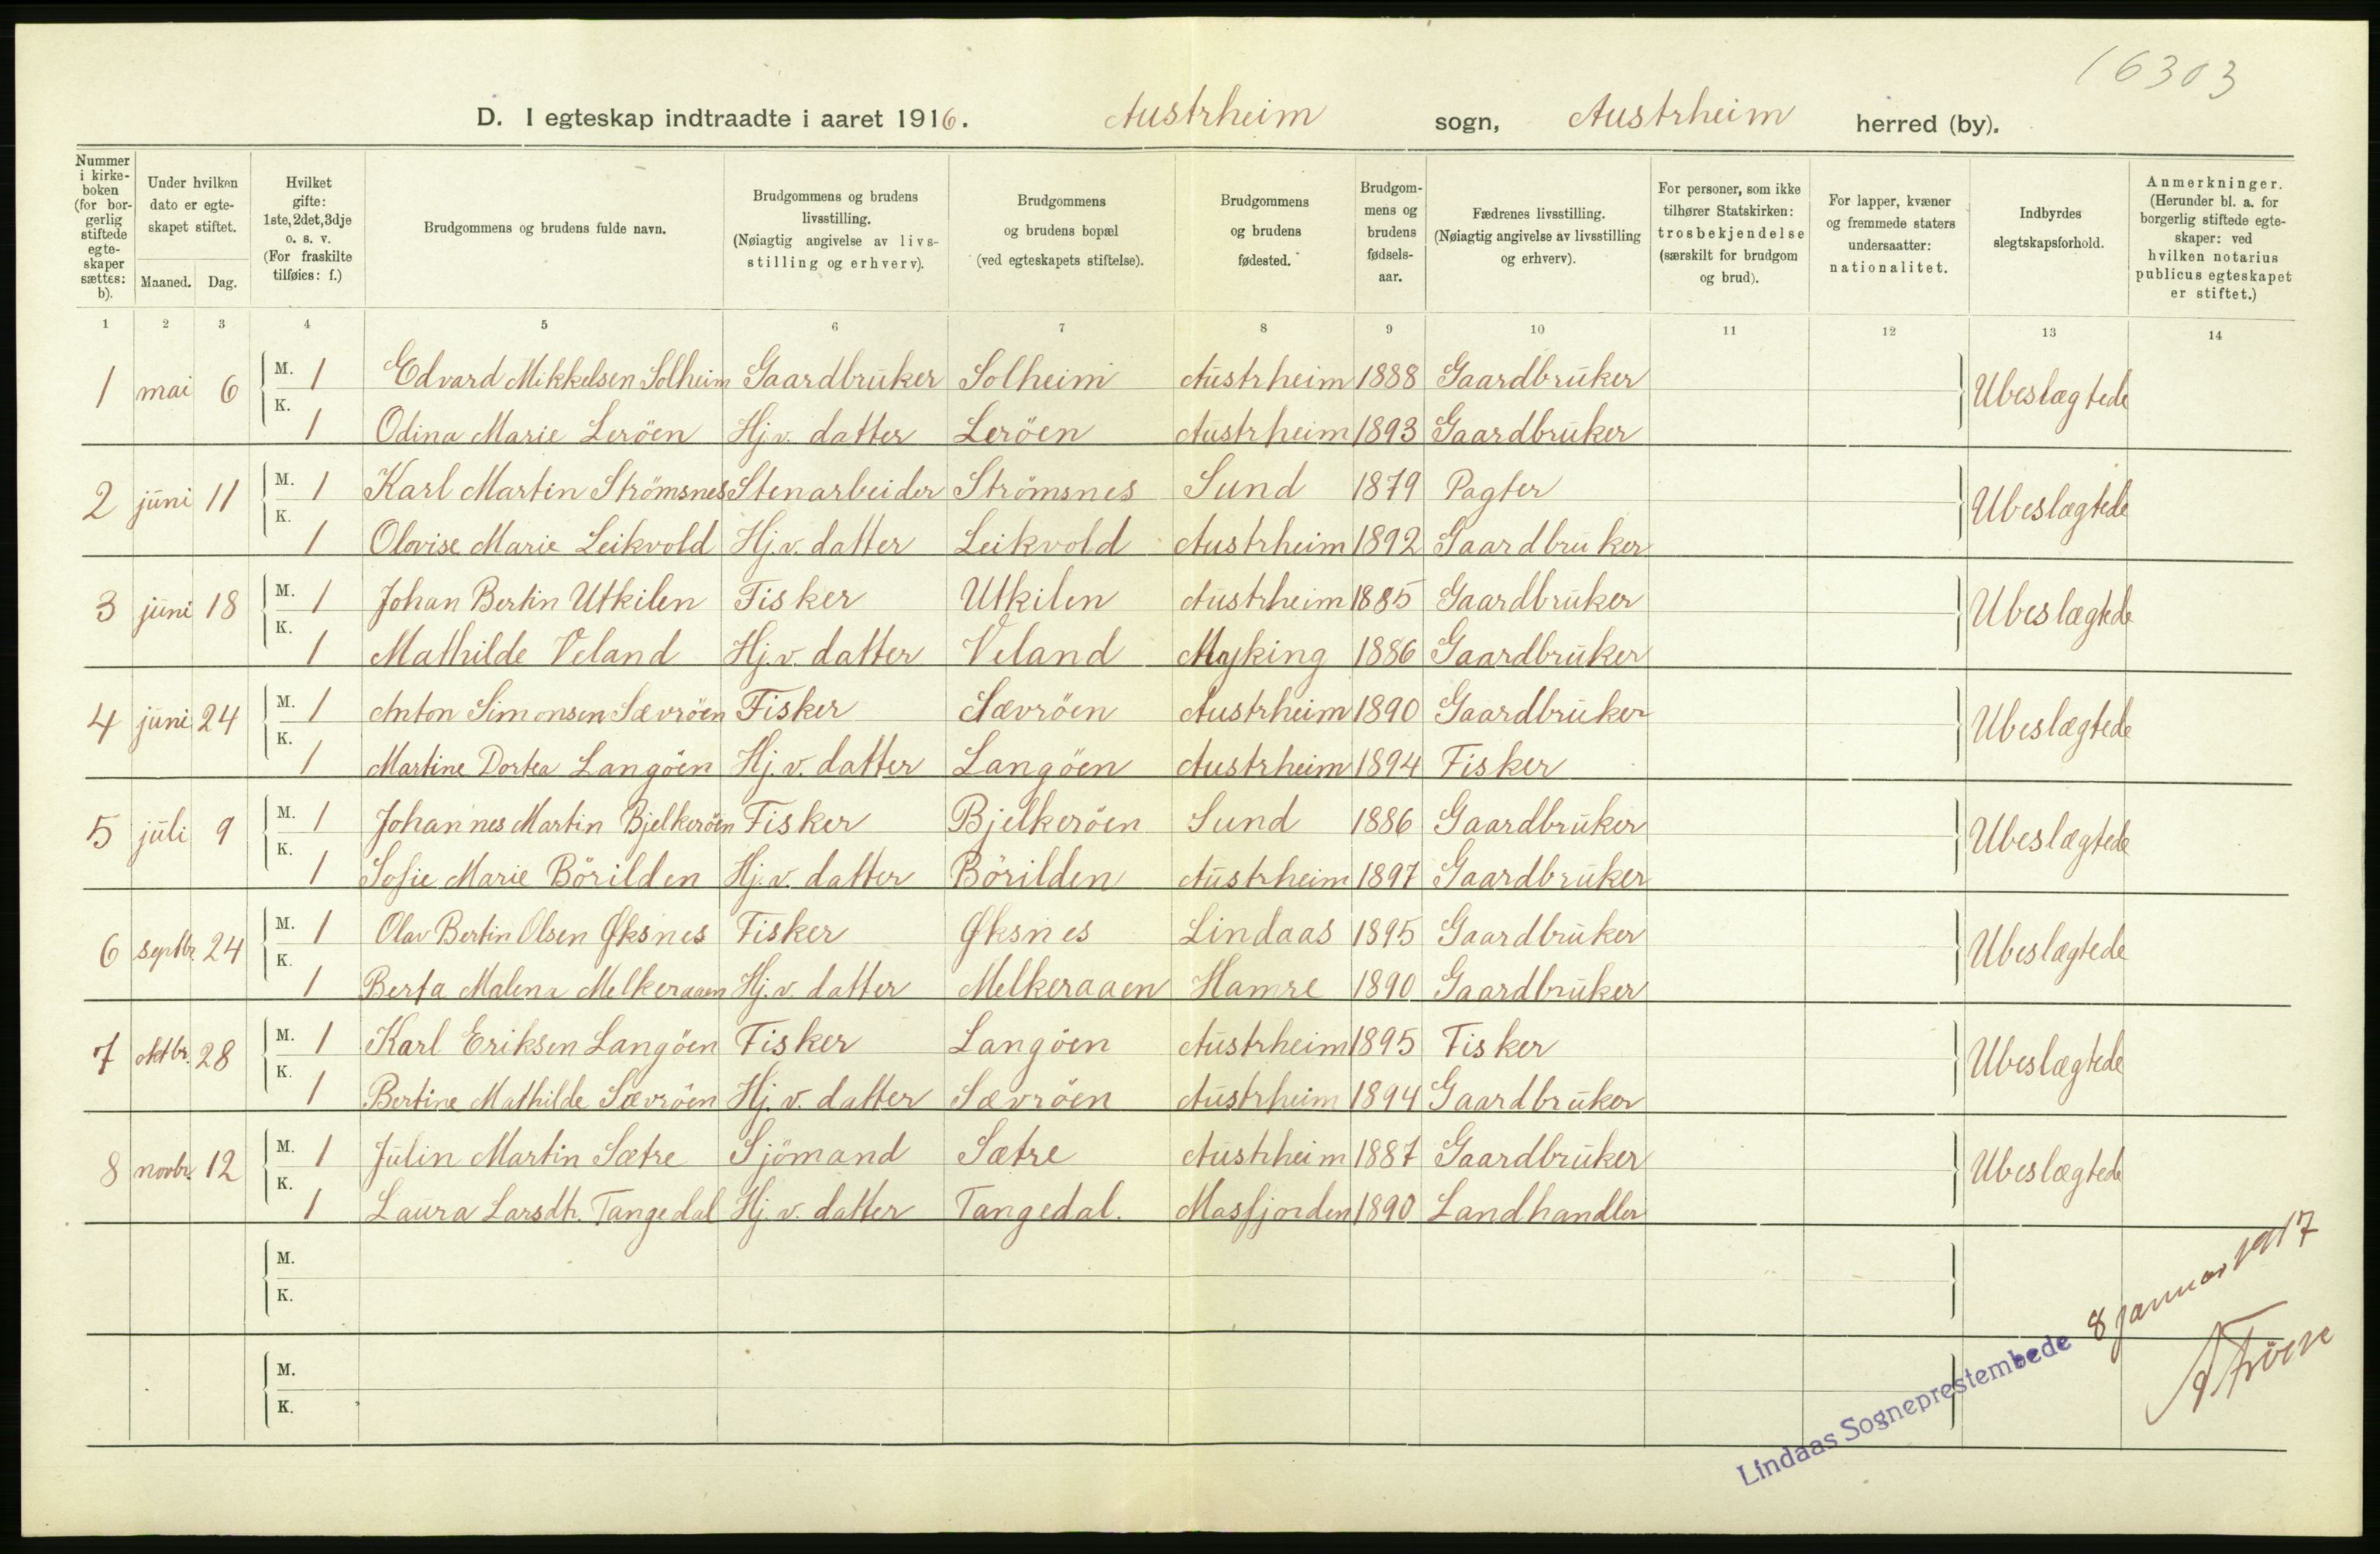 16303
D. I egteskap indtraadte i aaret 1916. Austrheim sogn, Austrheim herred (by).
Nummer i kirke-boken (for bor-gerlig stiftede egte-skaper sættes: b).
Under hvilken dato er egte-skapet stiftet.
Maaned. Dag.
Hvilket gifte: 1ste, 2det, 3dje o. s. v. (For fraskilte tilføies: f.)
Brudgommens og brudens fulde navn.
Brudgommens og brudens livsstilling. (Nøiagtig angivelse av livs-stilling og erhverv).
Brudgommens og brudens bopæl (ved egteskapets stiftelse).
Brudgommens og brudens fødested.
Brudgom-mens og brudens fødsels-aar.
Fædrenes livsstilling. (Nøiagtig angivelse av livsstilling og erhverv).
For personer, som ikke tilhører Statskirken: trosbekjendelse (særskilt for brudgom og brud).
For lapper, kvæner og fremmede staters undersaatter: nationalitet.
Indbyrdes slegtskapsforhold.
Anmerkninger. (Herunder bl. a. for borgerlig stiftede egte-skaper: ved hvilken notarius publicus egteskapet er stiftet.)
1 2 3 4 5 6 7 8 9 10 11 12 13 14
1 mai 6 M. 1 Edvard Mikkelsen Solheim Gaardbruker Solheim Austrheim 1888 Gaardbruker Ubeslægtede
K. 1 Odina Marie Leröen Hj.v. datter Leröen Austrheim 1893 Gaardbruker
2 juni 11 M. 1 Karl Martin Strömsnes Stenarbeider Strömsnes Sund 1879 Pagter Ubeslægtede
K. 1 Olovise Marie Leikvold Hj.v. datter Leikvold Austrheim 1892 Gaardbruker
3 juni 18 M. 1 Johan Bertin Utkilen Fisker Utkilen Austrheim 1885 Gaardbruker Ubeslægtede
K. 1 Mathilde Veland Hj.v. datter Veland Myking 1886 Gaardbruker
4 juni 24 M. 1 Anton Simonsen Sævröen Fisker Sævröen Austrheim 1890 Gaardbruker Ubeslægtede
K. 1 Martine Dortea Langöen Hj.v. datter Langöen Austrheim 1894 Fisker
5 juli 9 M. 1 Johannes Martin Bjelkeröen Fisker Bjelkeröen Sund 1886 Gaardbruker Ubeslægtede
K. 1 Sofie Marie Börilden Hj.v. datter Börilden Austrheim 1897 Gaardbruker
6 septbr. 24 M. 1 Olav Bertin Olsen Øksnes Fisker Øksnes Lindaas 1895 Gaardbruker Ubeslægtede
K. 1 Berta Malena Melkeraaen Hj.v. datter Melkeraaen Hamre 1890 Gaardbruker
7 oktbr. 28 M. 1 Karl Eriksen Langöen Fisker Langöen Austrheim 1895 Fisker Ubeslægtede
K. 1 Bertine Mathilde Sævröen Hj.v. datter Sævröen Austrheim 1894 Gaardbruker
8 novbr. 12 M. 1 Julin Martin Sætre Sjömand Sætre Austrheim 1887 Gaardbruker Ubeslægtede
K. 1 Laura Larsdtr. Tangedal Hj.v. datter Tangedal. Masfjorden 1890 Landhandler
M.
K.
M.
K.
Lindaas Sogneprestembede 8 januar 1917